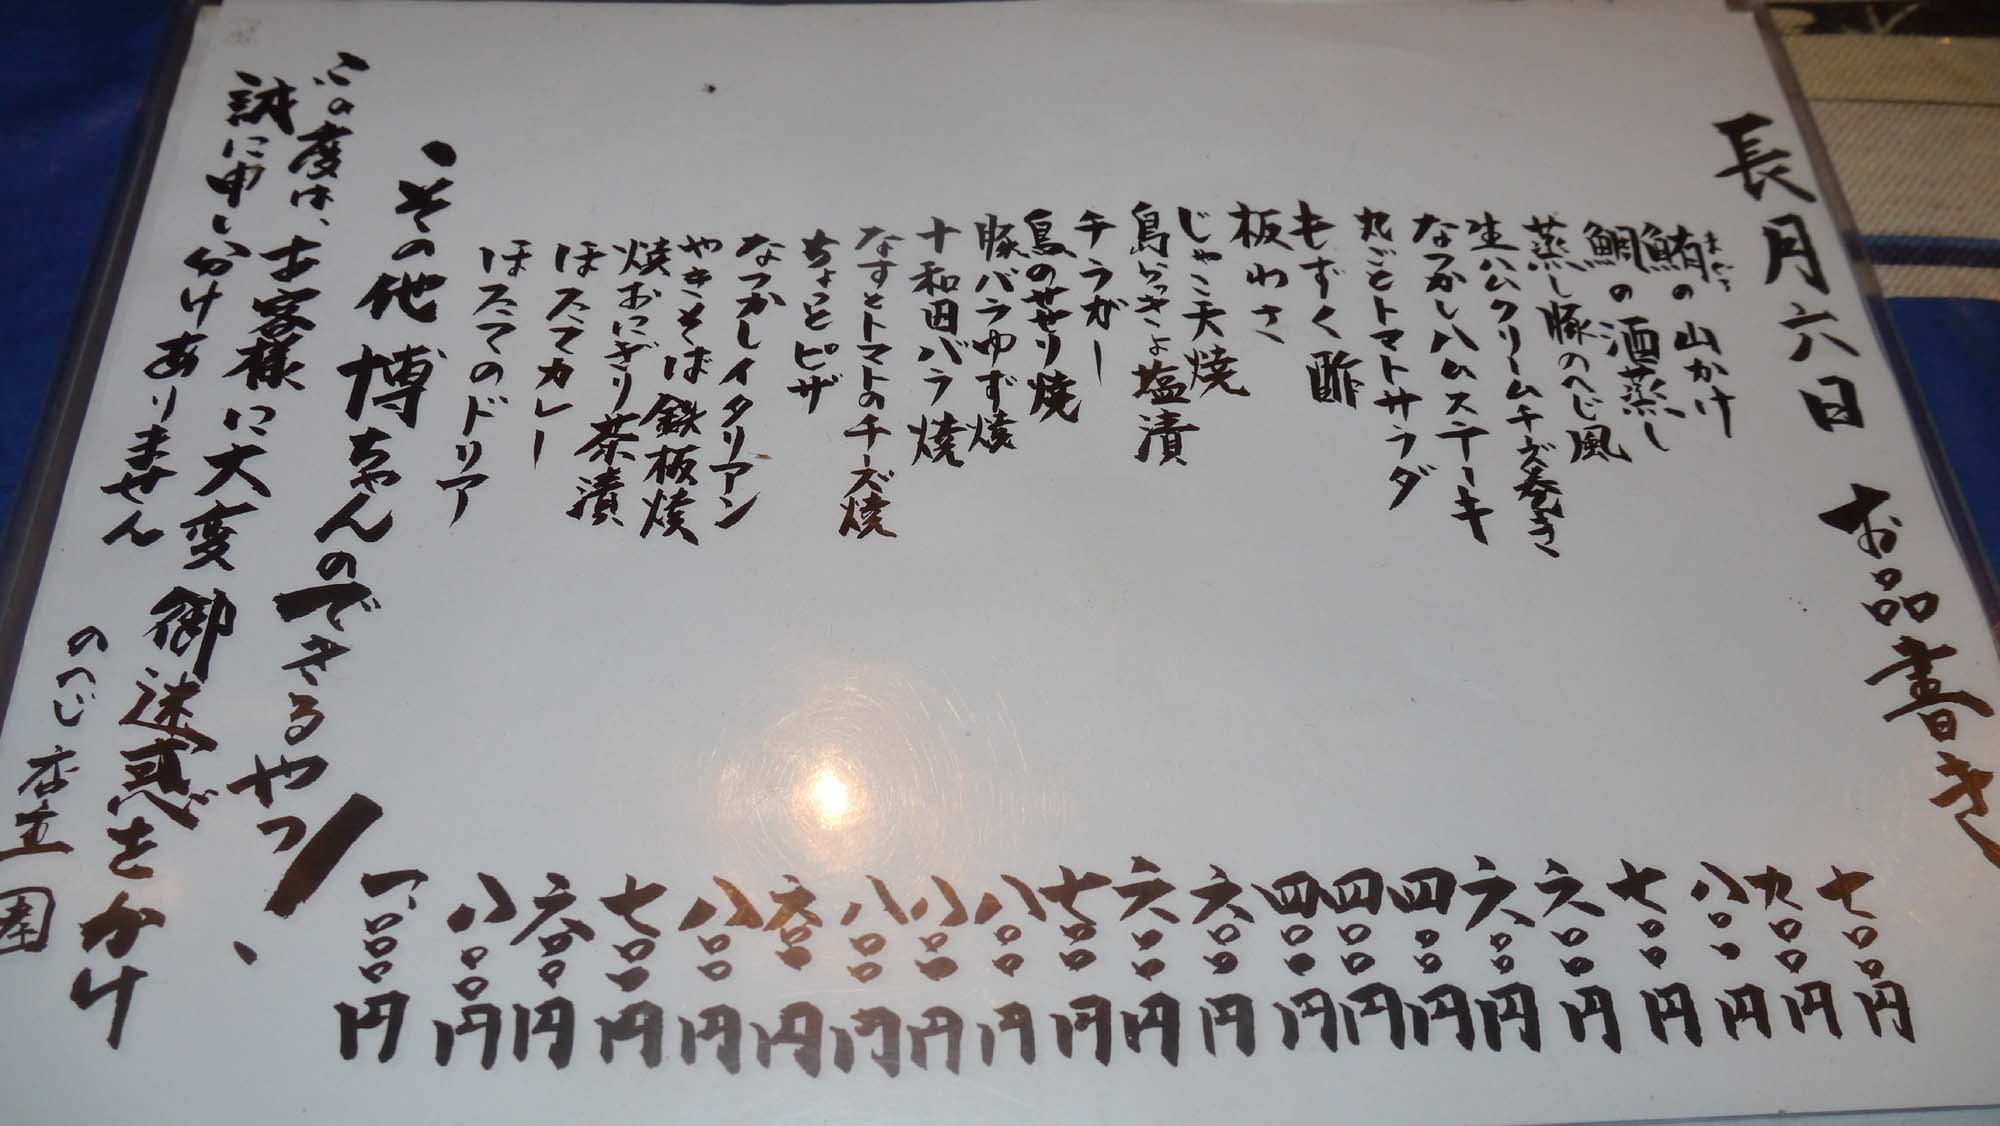 長月六日 お品書き
鮪の山かけ 七〇〇円
まぐろ
鯛の酒蒸し 九〇〇円
蒸し豚のへじ風 八〇〇円
生ハムクリームチーズ巻き 七〇〇円
なつかしハムステーキ 六〇〇円
丸ごとトマトサラダ 六〇〇円
もずく酢 四〇〇円
板わさ 四〇〇円
じゃこ天焼 四〇〇円
島らっきょ塩漬 六〇〇円
チラガー 六〇〇円
鳥のせせり焼 七〇〇円
豚バラゆず焼 八〇〇円
十和田バラ焼 八〇〇円
なすとトマトのチーズ焼 八〇〇円
ちょっとピザ 六〇〇円
なつかしイタリアン 八〇〇円
やきそば鉄板焼 七〇〇円
焼おにぎり茶漬 六〇〇円
ほたてカレー 八〇〇円
ほたてのドリア 一、〇〇〇円
、その他博ちゃんのできるやつ！、
この度は、お客様に大変御迷惑をかけ
誠に申し分けありません
のへじ 店主